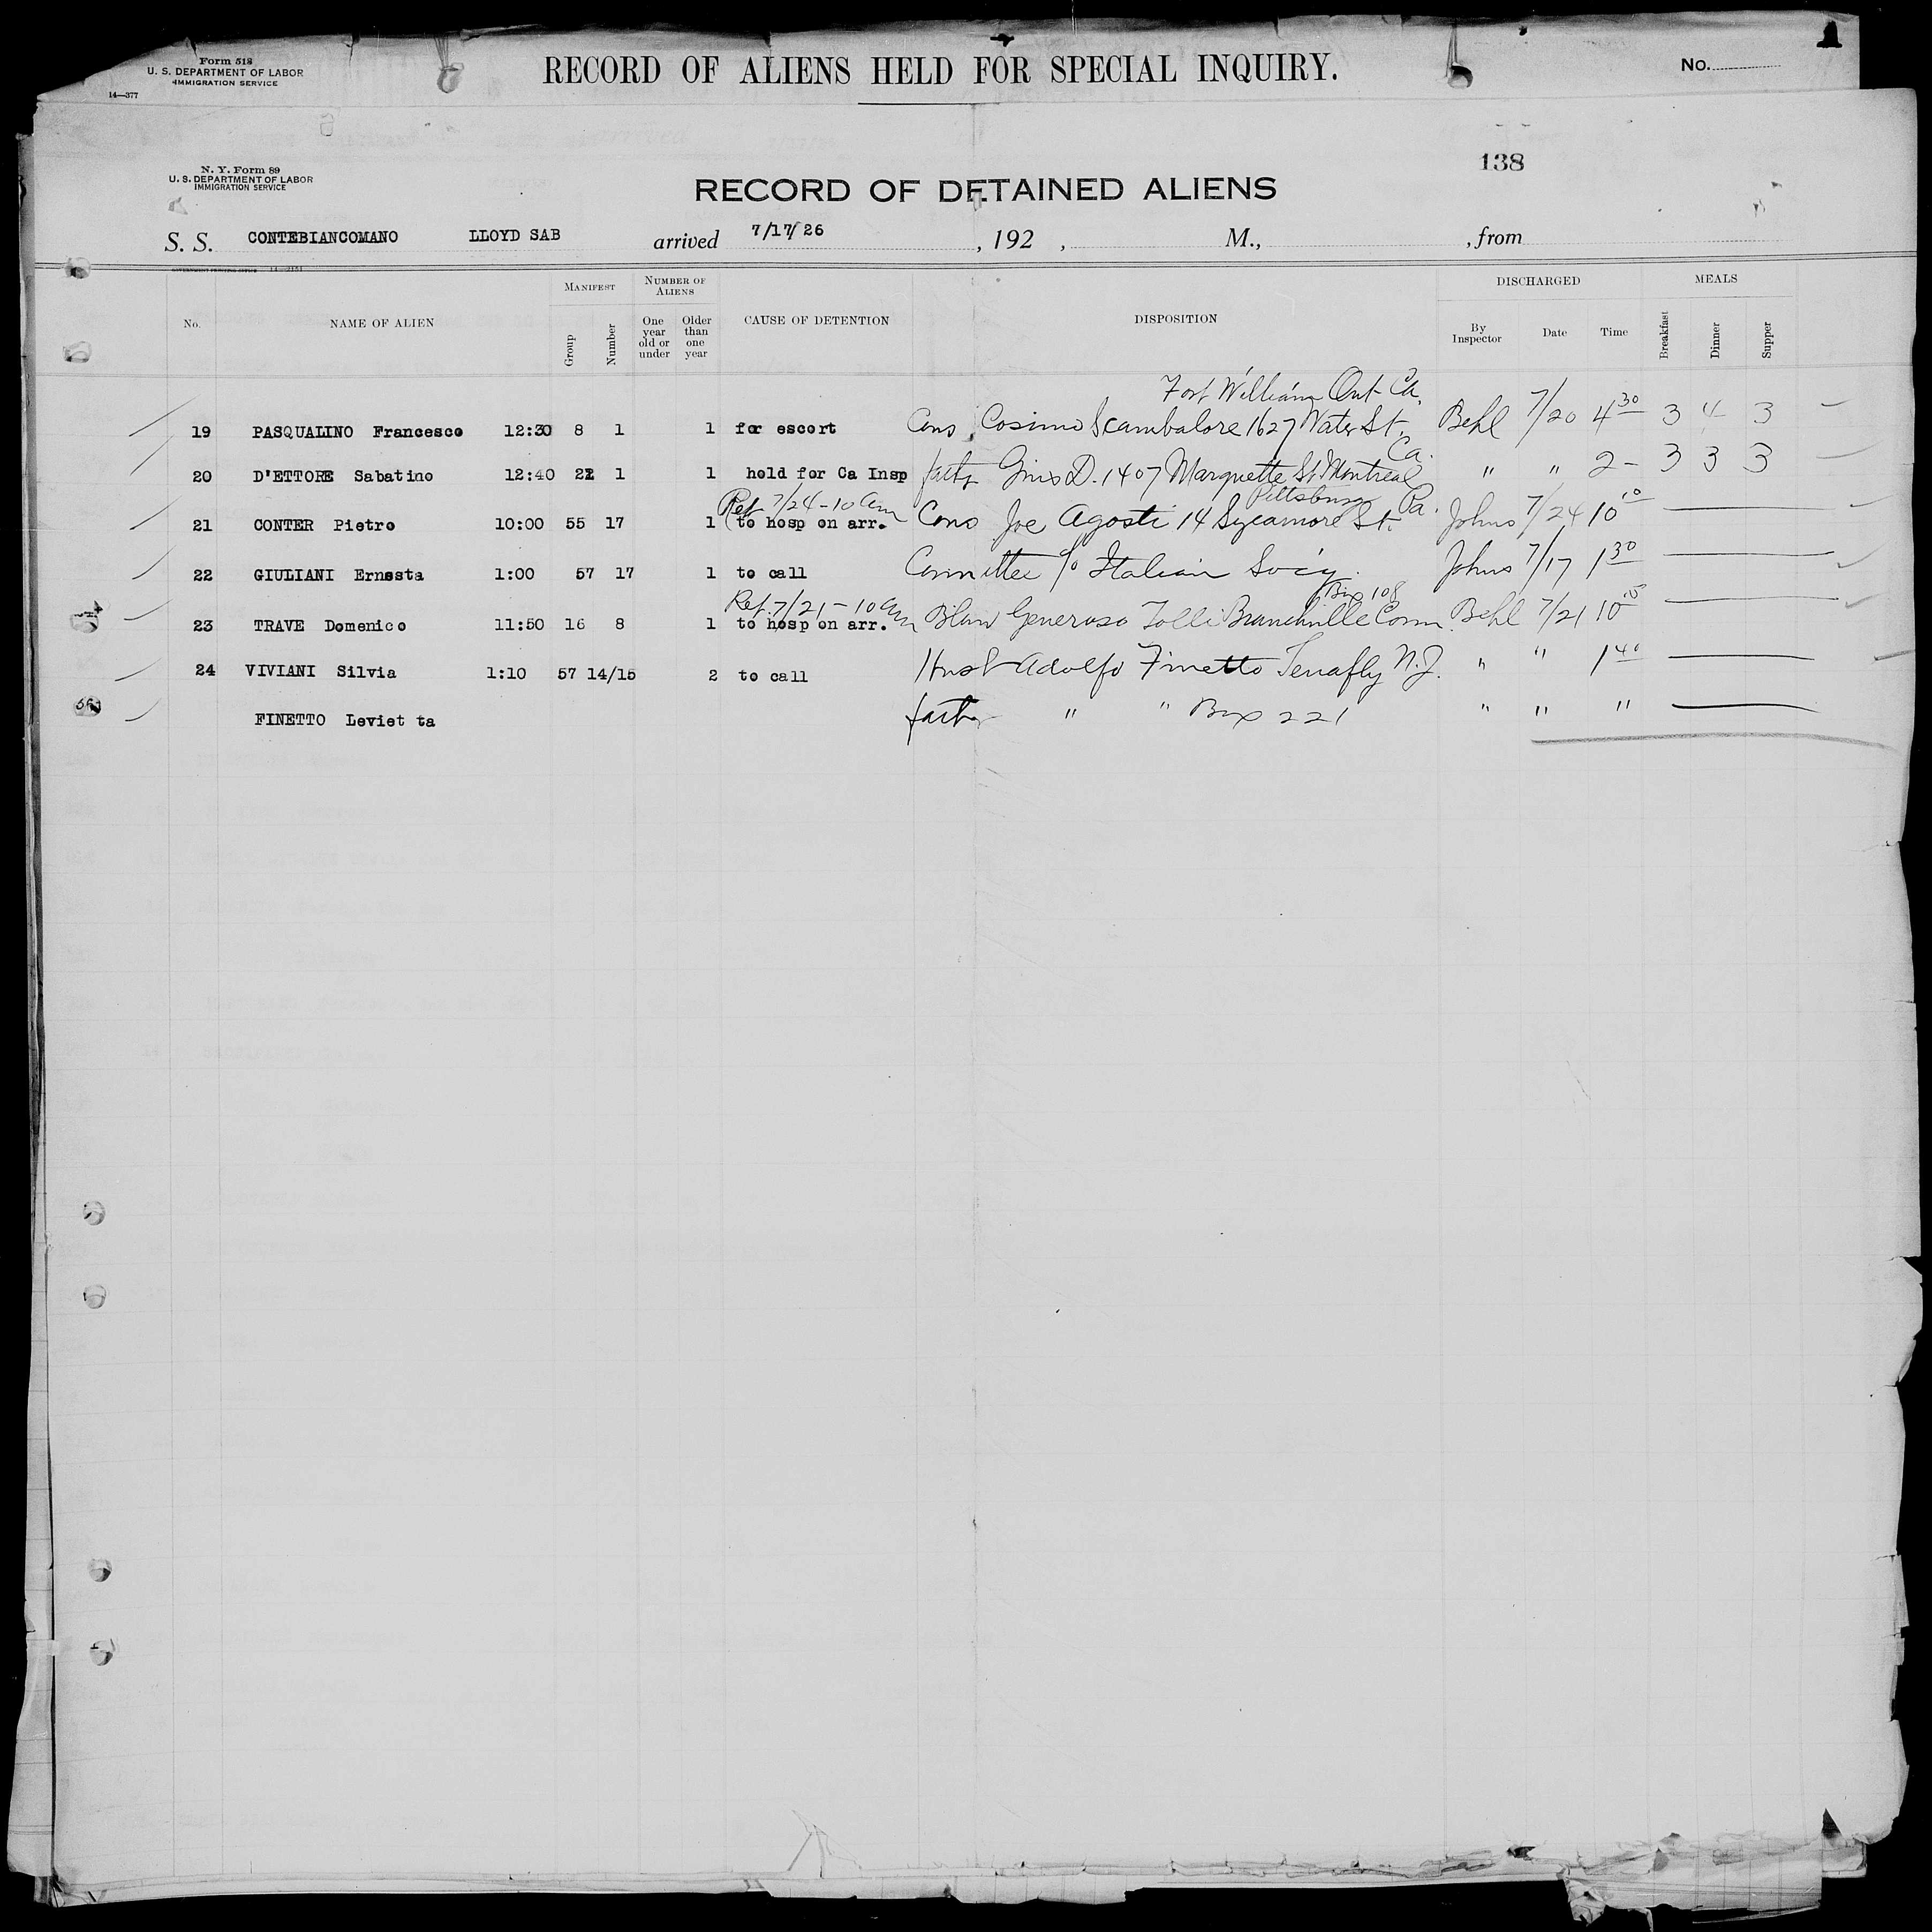 Form 518
U. S. DEPARTMENT OF LABOR
IMMIGRATION SERVICE
14—377
RECORD OF ALIENS HELD FOR SPECIAL INQUIRY.
No.
138
N. Y. Form 89
U. S. DEPARTMENT OF LABOR
IMMIGRATION SERVICE
RECORD OF DETAINED ALIENS
S. S. CONTEBIANCOMANO LLOYD SAB arrived 7/17/26 , 192 , M., , from
No. NAME OF ALIEN MANIFEST Group Number NUMBER OF ALIENS One year old or under Older than one year CAUSE OF DETENTION DISPOSITION DISCHARGED By Inspector Date Time MEALS Breakfast Dinner Supper
Fort William Ont Ca.
19 PASQUALINO Francesco 12:30 8 1 1 for escort Cons Cosimo Scambalore 1627 Water St. Behl 7/20 4 30 3 4 3
Ca.
20 D'ETTORE Sabatino 12:40 22 1 1 held for Ca Insp fath D. 1407 Marquette St Montreal " " 2 - 3 3 3
Ret 7/24 - 10 am Pittsburg Pa.
21 CONTER Pietro 10:00 55 17 1 (to hosp on arr. Cons Joe Agosti 14 Sycamore St. Johns 7/24 10
22 GIULIANI Ernesta 1:00 57 17 1 to call Committee c/o Italian Soc'y. Johns 7/17 1 30
Ret. 7/21 - 10 am Box 108
23 TRAVE Domenico 11:50 16 8 1 to hosp on arr. Blaw Generoso Tolli Branchville Conn. Behl 7/21 10
24 VIVIANI Silvia 1:10 57 14/15 2 to call Husb Adolfo Finetto Tenafly N.J. " " 1 40
FINETTO Leviet ta father " " Box 221 " " "